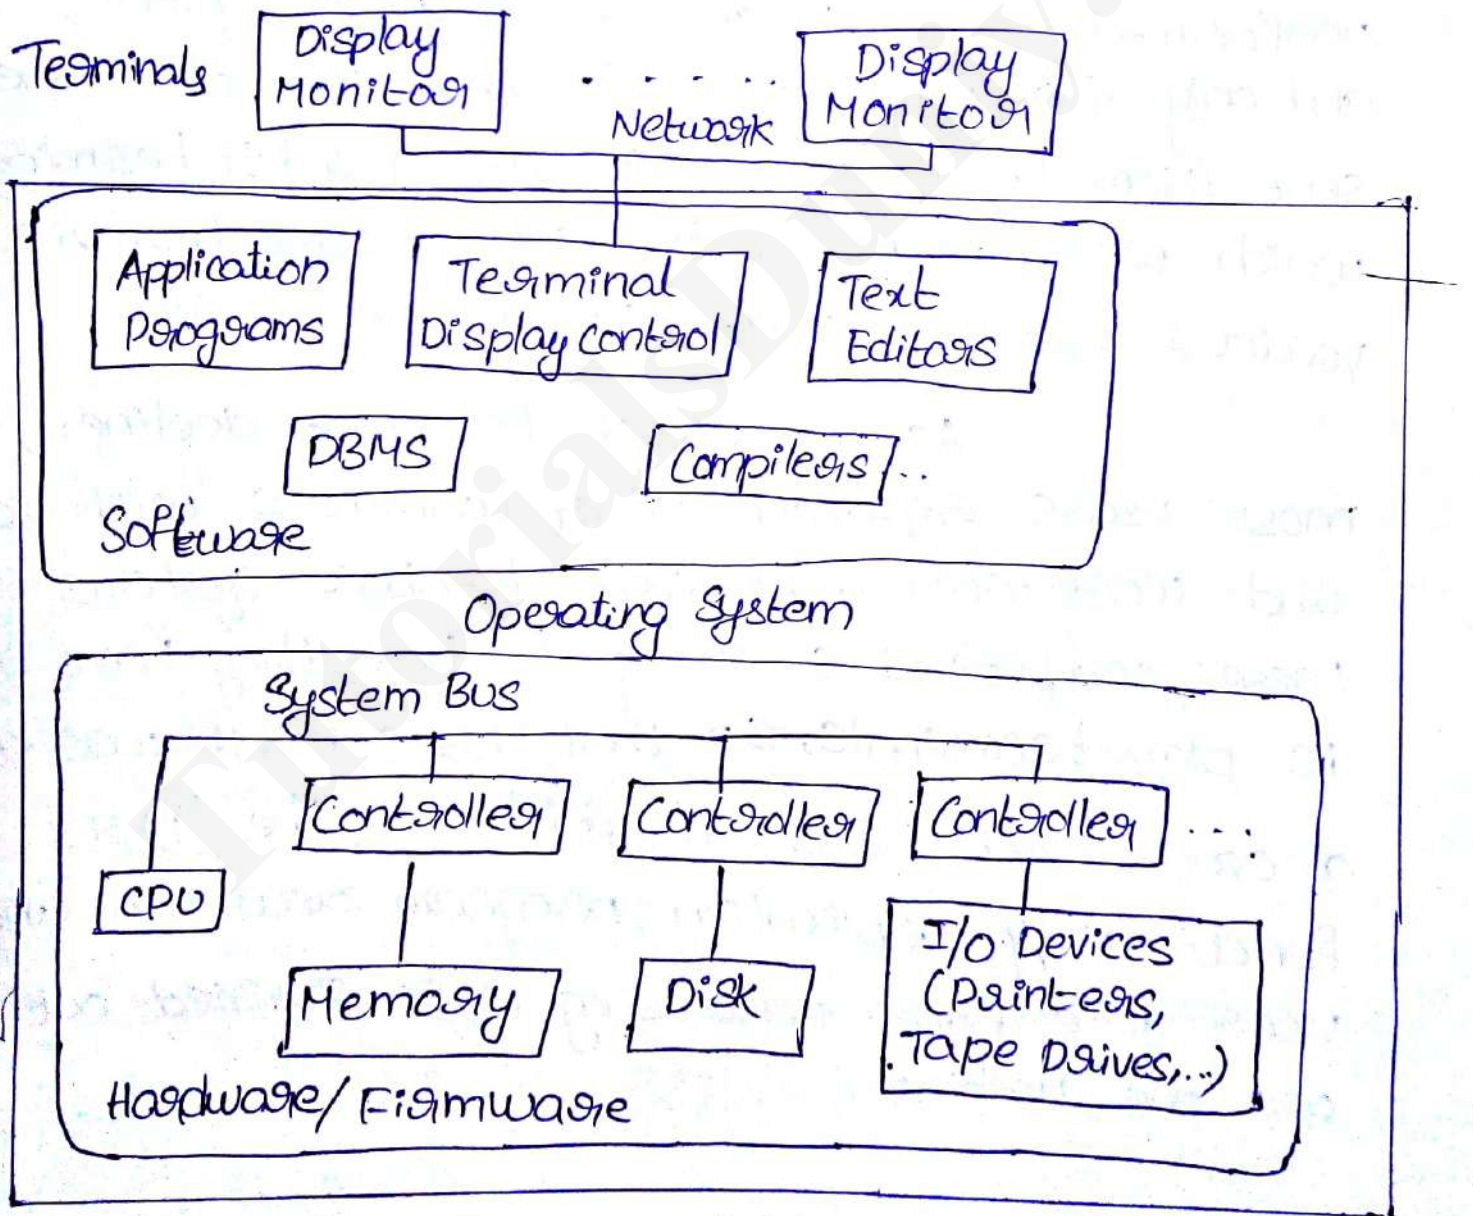 Terminals
Display
Monitor
. . . . .
Display
Monitor
Network
Application
Programs
Terminal
Display control
Text
Editors
DBMS
Compilers
..
Software
Operating System
System BUS
Controller
Controller
Controller
...
CPU
Memory
Disk
I/O Devices
(Printers,
Tape Drives,..)
Hardware/Firmware
TutorialsDuniya.